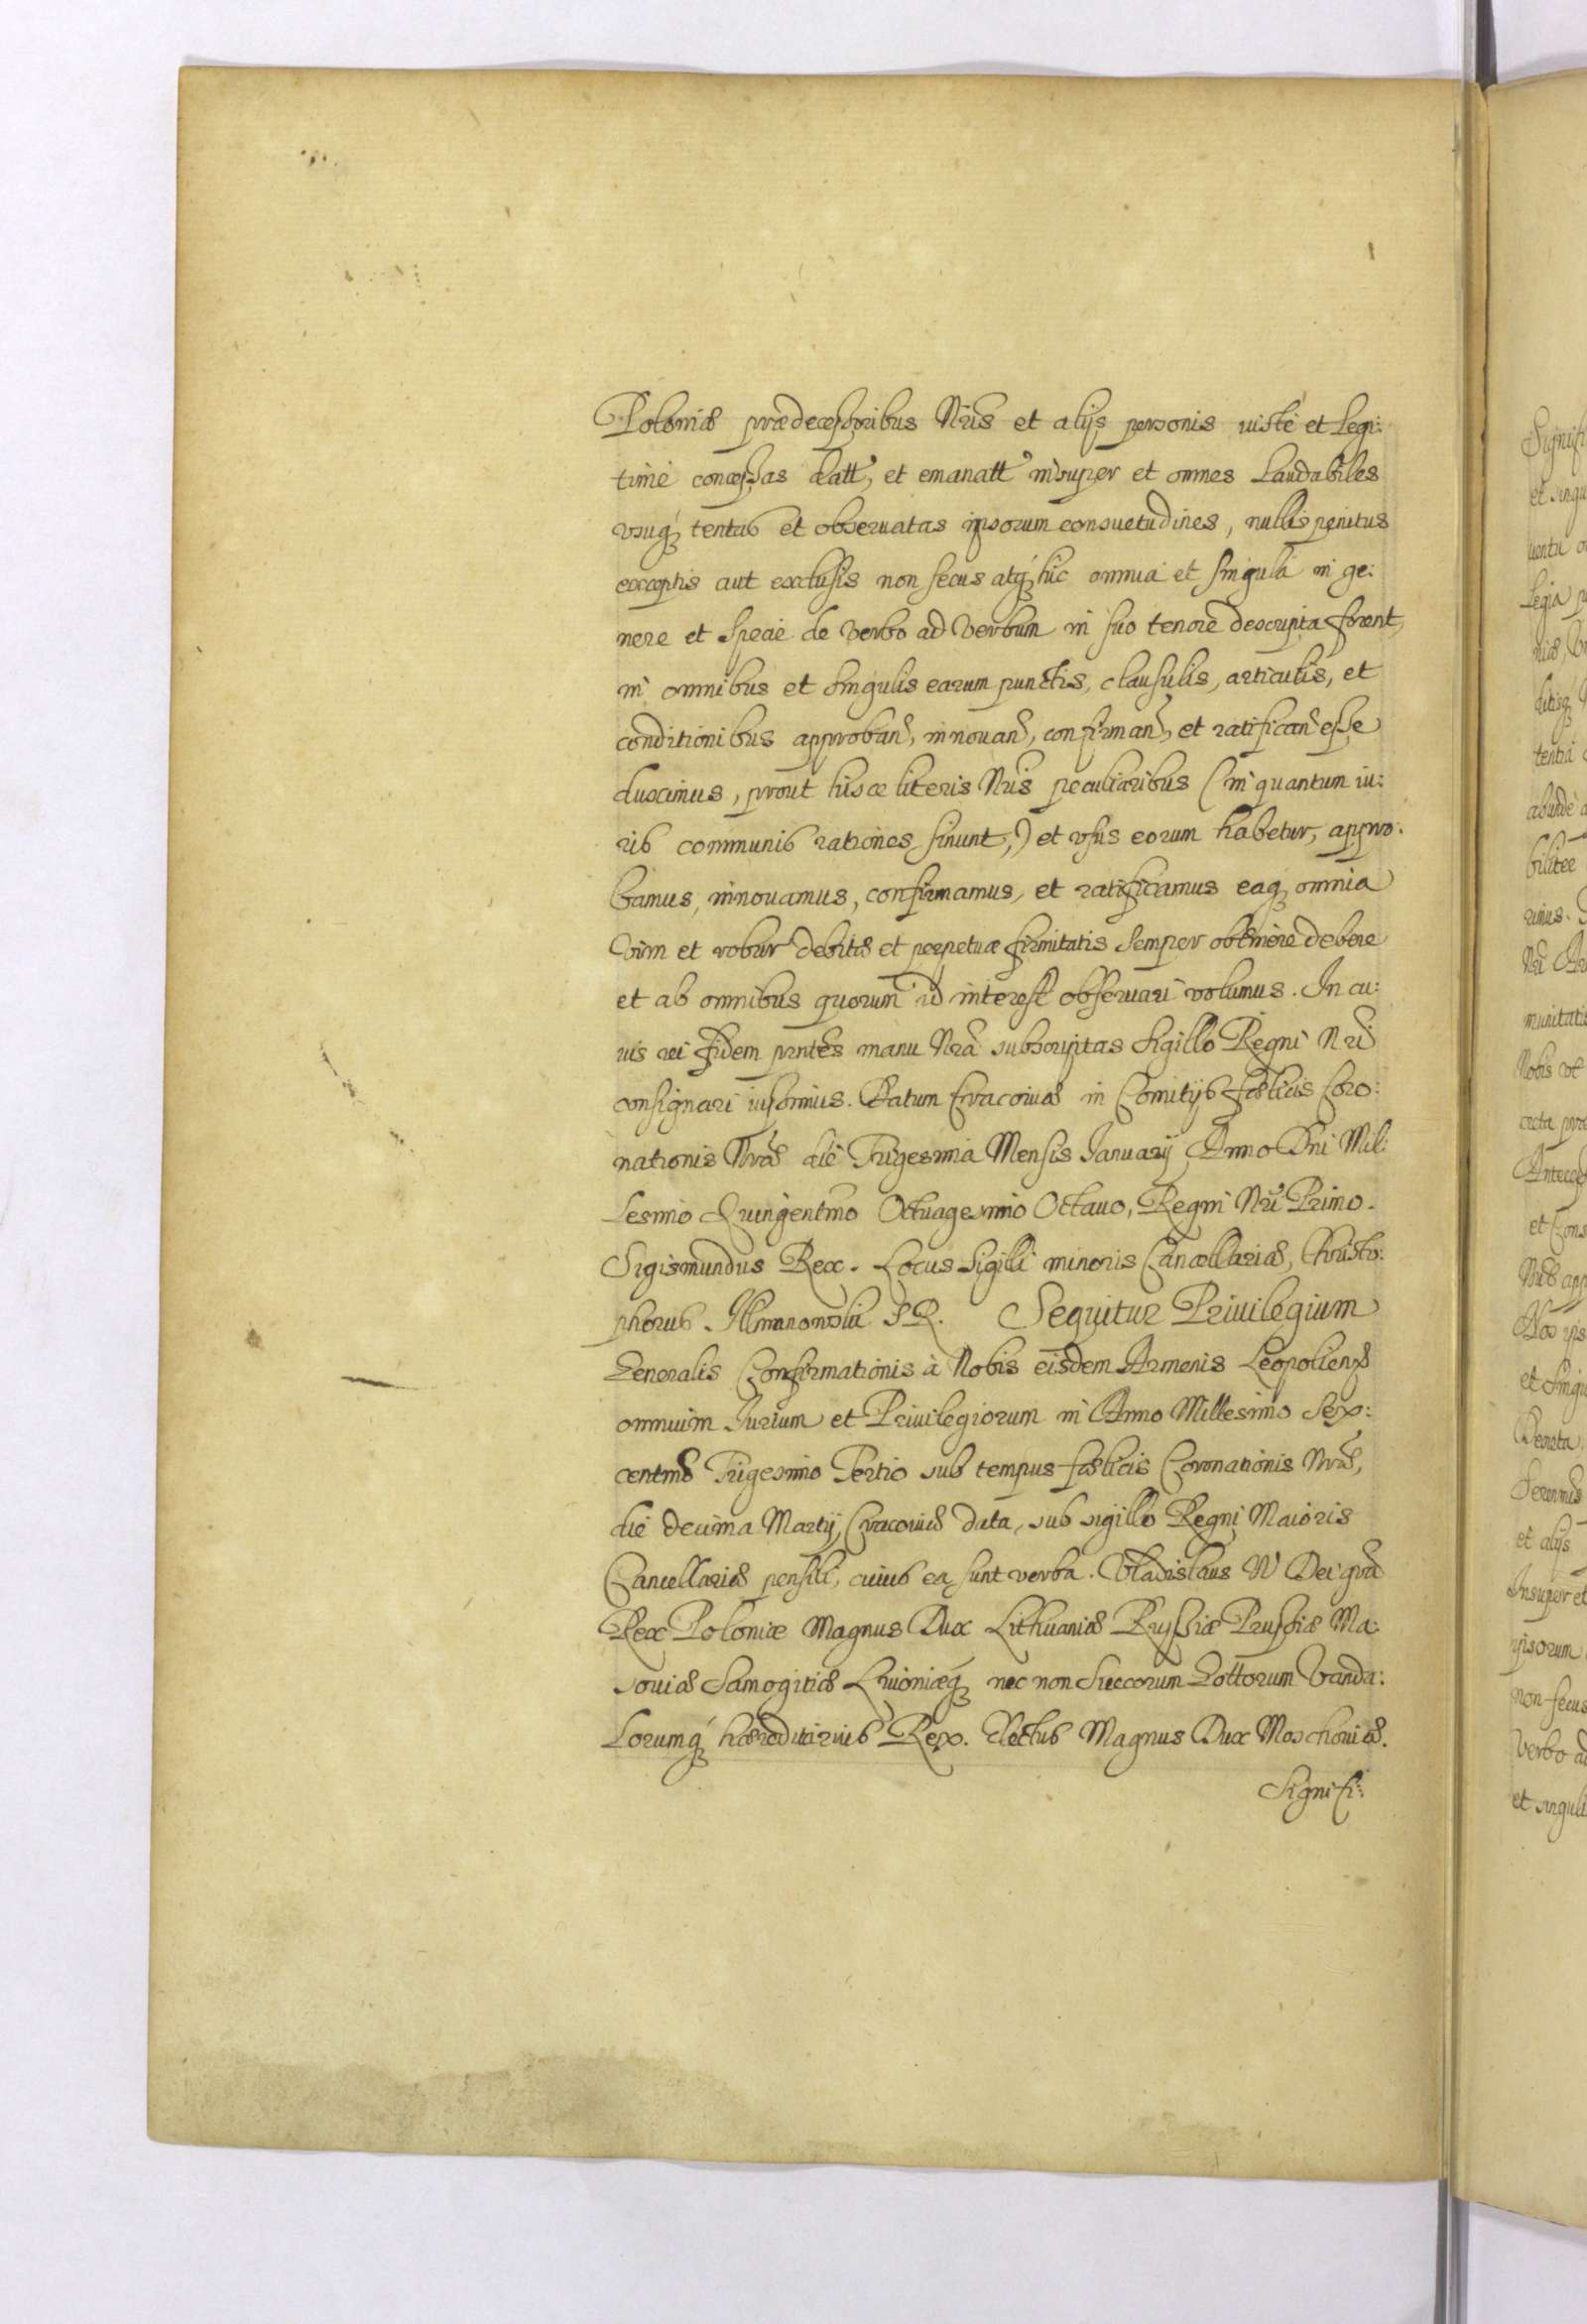 Poloniæ prædecessoribus Nris et alijs personis iustè et Legi:
timè concessas datt, et emanatt insuper et omnes Laudabiles
usuq; tentas et obseruatas ipsorum consuetudines, nullis penitus
exceptis aut exclusis non secus atq; hic omnia et singula in ge:
nere et specie de verbo ad verbum in suo tenore descripta forent,
in omnibus et singulis earum punctis, clausulis, articulis, et
conditionibus approband, innouand, confirmand, et ratificand esse
duximus, prout hisce literis Nris peculiaribus (in quantum iu:
ris communis rationes sinunt,) et usus eorum habetur, appro:
bamus, innouamus, confirmamus, et ratificamus eaq; omnia
vim et robur debitæ et perpetuæ firmitatis semper obtinere debere
et ab omnibus quorum id interest obseruari volumus. In cu:
ius rei fidem pntes manu Nra subscriptas sigillo Regni Nri
consignari iussimus. Datum Cracouiæ in Comitijs fælicis Coro:
nationis Nræ die Trigesima Mensis Januarij Anno Dni Mil:
Lesimo Quingentmo Octuagesimo Octauo, Regni Nri Primo.
Sigismundus Rex. Locus Sigilli minoris Cancellariæ, Christo:
phorus SR. Sequitur Priuilegium
Generalis Confirmationis à Nobis eisdem Armenis Leopoliens
omnium Jurium et Priuilegiorum in Anno Millesimo Sex:
centmo Trigesimo Tertio sub tempus fælicis Coronationis Nræ,
die decima Martij, Cracouiæ data, sub sigillo Regni Maioris
Cancellariæ pensili, cuius ea sunt verba. Vladislaus IV Dei gra
Rex Poloniæ Magnus Dux Lithuaniæ Russiæ Prussiæ Ma:
souiæ Samogitiæ Liuoniæq; nec non Suecorum Gottorum Vanda:
Lorumq; hæreditarius Rex. Electus Magnus Dux Moschouiæ.
Signifi: